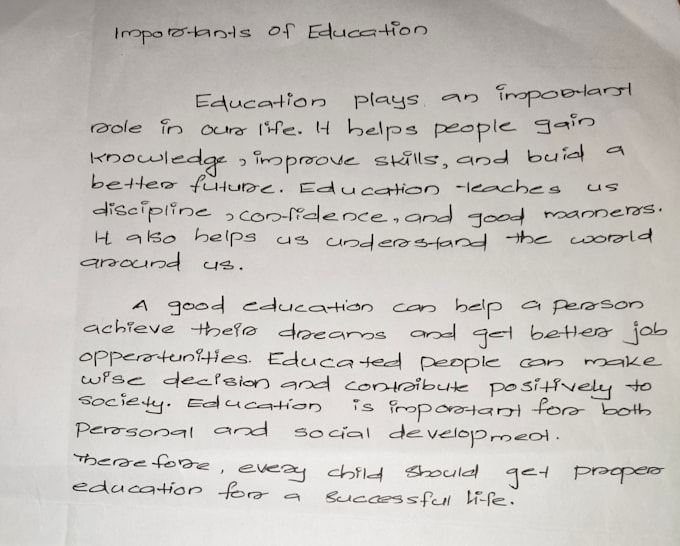 Importants of Education
Education plays an important
role in our life. It helps people gain
knowledge, improve skills, and buid a
better future. Education teaches us
discipline, confidence, and good manners.
It also helps us understand the world
around us.
A good education can help a person
achieve their dreams and get better job
oppertunities. Educated people can make
wise decision and contribute positively to
society. Education is important for both
Personal and social development.
Therefore, every child should get proper
education for a successful life.